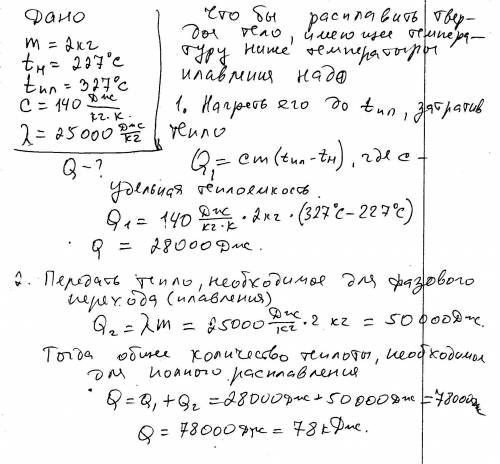 Дано
m = 2кг
tн = 227°C
tпл = 327°C
c = 140 Дж/кг·К
λ = 25000 Дж/кг
Q – ?
Что бы расплавить твер-
дое тело, имеющее темпера-
туру ниже температуры
плавления надо
1. Нагреть его до tпл, затратив
тепло
Q1 = cm(tпл - tн), где c -
удельная теплоемкость
Q1 = 140 Дж/кг·К · 2кг · (327°C - 227°C)
Q = 28000 Дж.
2. Передать тепло, необходимое для фазового
перехода (плавления)
Q2 = λm = 25000 Дж/кг · 2 кг = 50000 Дж.
Тогда общее количество теплоты, необходимое
для полного расплавления
Q = Q1 + Q2 = 28000 Дж + 50000 Дж = 78000 Дж
Q = 78000 Дж = 78 кДж.